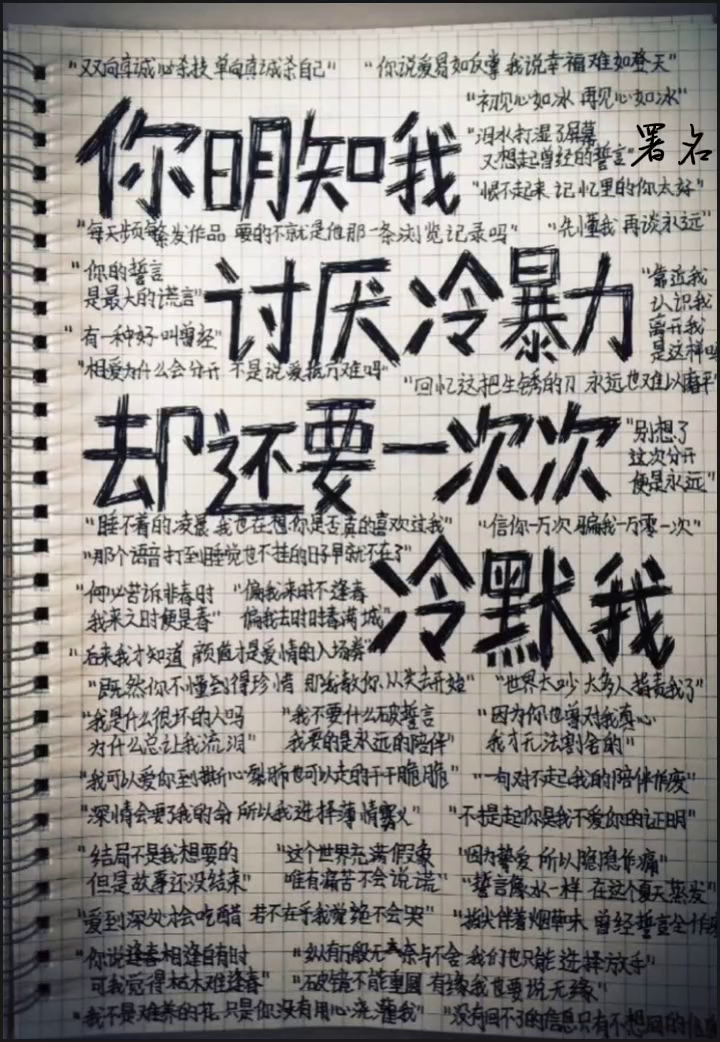 "双向真诚必杀技 单向真诚杀自己" "你说爱易如反掌 我说幸福难如登天"
"初见心如冰 再见心如冰"
你明知我
"泪水打湿了屏幕
又想起曾经的誓言"
署名
"恨不起来 记忆里的你太好"
"每天频繁发作品 要的不就是他那一条浏览记录吗" "先懂我 再谈永远"
"你的誓言
是最大的谎言"
讨厌冷暴力
"靠近我
认识我
离开我
是这样吗
"有一种好叫曾经"
"相爱为什么会分开 不是说爱抵万难吗"
"回忆这把生锈的刀 永远也难以磨平
却还要一次次
"别想了
这次分开
便是永远"
"睡不着的凌晨 我也在想你是否真的喜欢过我" "信你一万次 骗我一万零一次"
"那个语音打到睡觉也不挂的日子早就不在了"
冷默我
"何必苦诉非春时
我来之时便是春"
"偏我来时不逢春
偏我去时时春满城"
"后来我才知道 颜值才是爱情的入场券"
"既然你不懂到得珍惜 那我教你从失去开始" "世界太吵 太多人指责我了"
"我是什么很坏的人吗
为什么总让我流泪"
"我不要什么破誓言
我要的是永远的陪伴"
"因为你也曾对我真心
我才无法割舍的"
"我可以爱你到撕心裂肺也可以走的干干脆脆" "一句对不起我的陪伴作废"
"深情会要了我的命 所以我选择薄情寡义" "不提起你是我不爱你的证明"
"结局不是我想要的
但是故事还没结束"
"这个世界充满假象
唯有痛苦不会说谎"
"因为挚爱 所以隐隐作痛"
"誓言像水一样 在这个夏天蒸发"
"爱到深处才会吃醋 若不在乎我觉绝不会哭" "指尖伴着烟草味 曾经誓言全作
"你说逢春相逢自有时
可我觉得枯木难逢春"
"纵有万般无奈与不舍 我们也只能选择放手"
"破镜不能重圆 有缘我也要说无缘"
"我不是难养的花 只是你没有用心浇灌我" "没有回不了的信息只有不想回的信